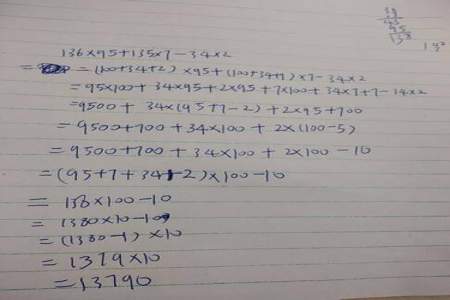 39
95
138
136×95+135×7-34×2
= (100+34+2)×95+(100+34+1)×7-34×2
=95×100+34×95+2×95+7×100+34×7+7-34×2
=9500+34×(95+7-2)+2×95+700
=9500+700+34×100+2×(100-5)
=9500+700+34×100+2×100-10
=(95+7+34+2)×100-10
=138×100-10
=1380×10-10
=(1380-1)×10
=1379×10
=13790